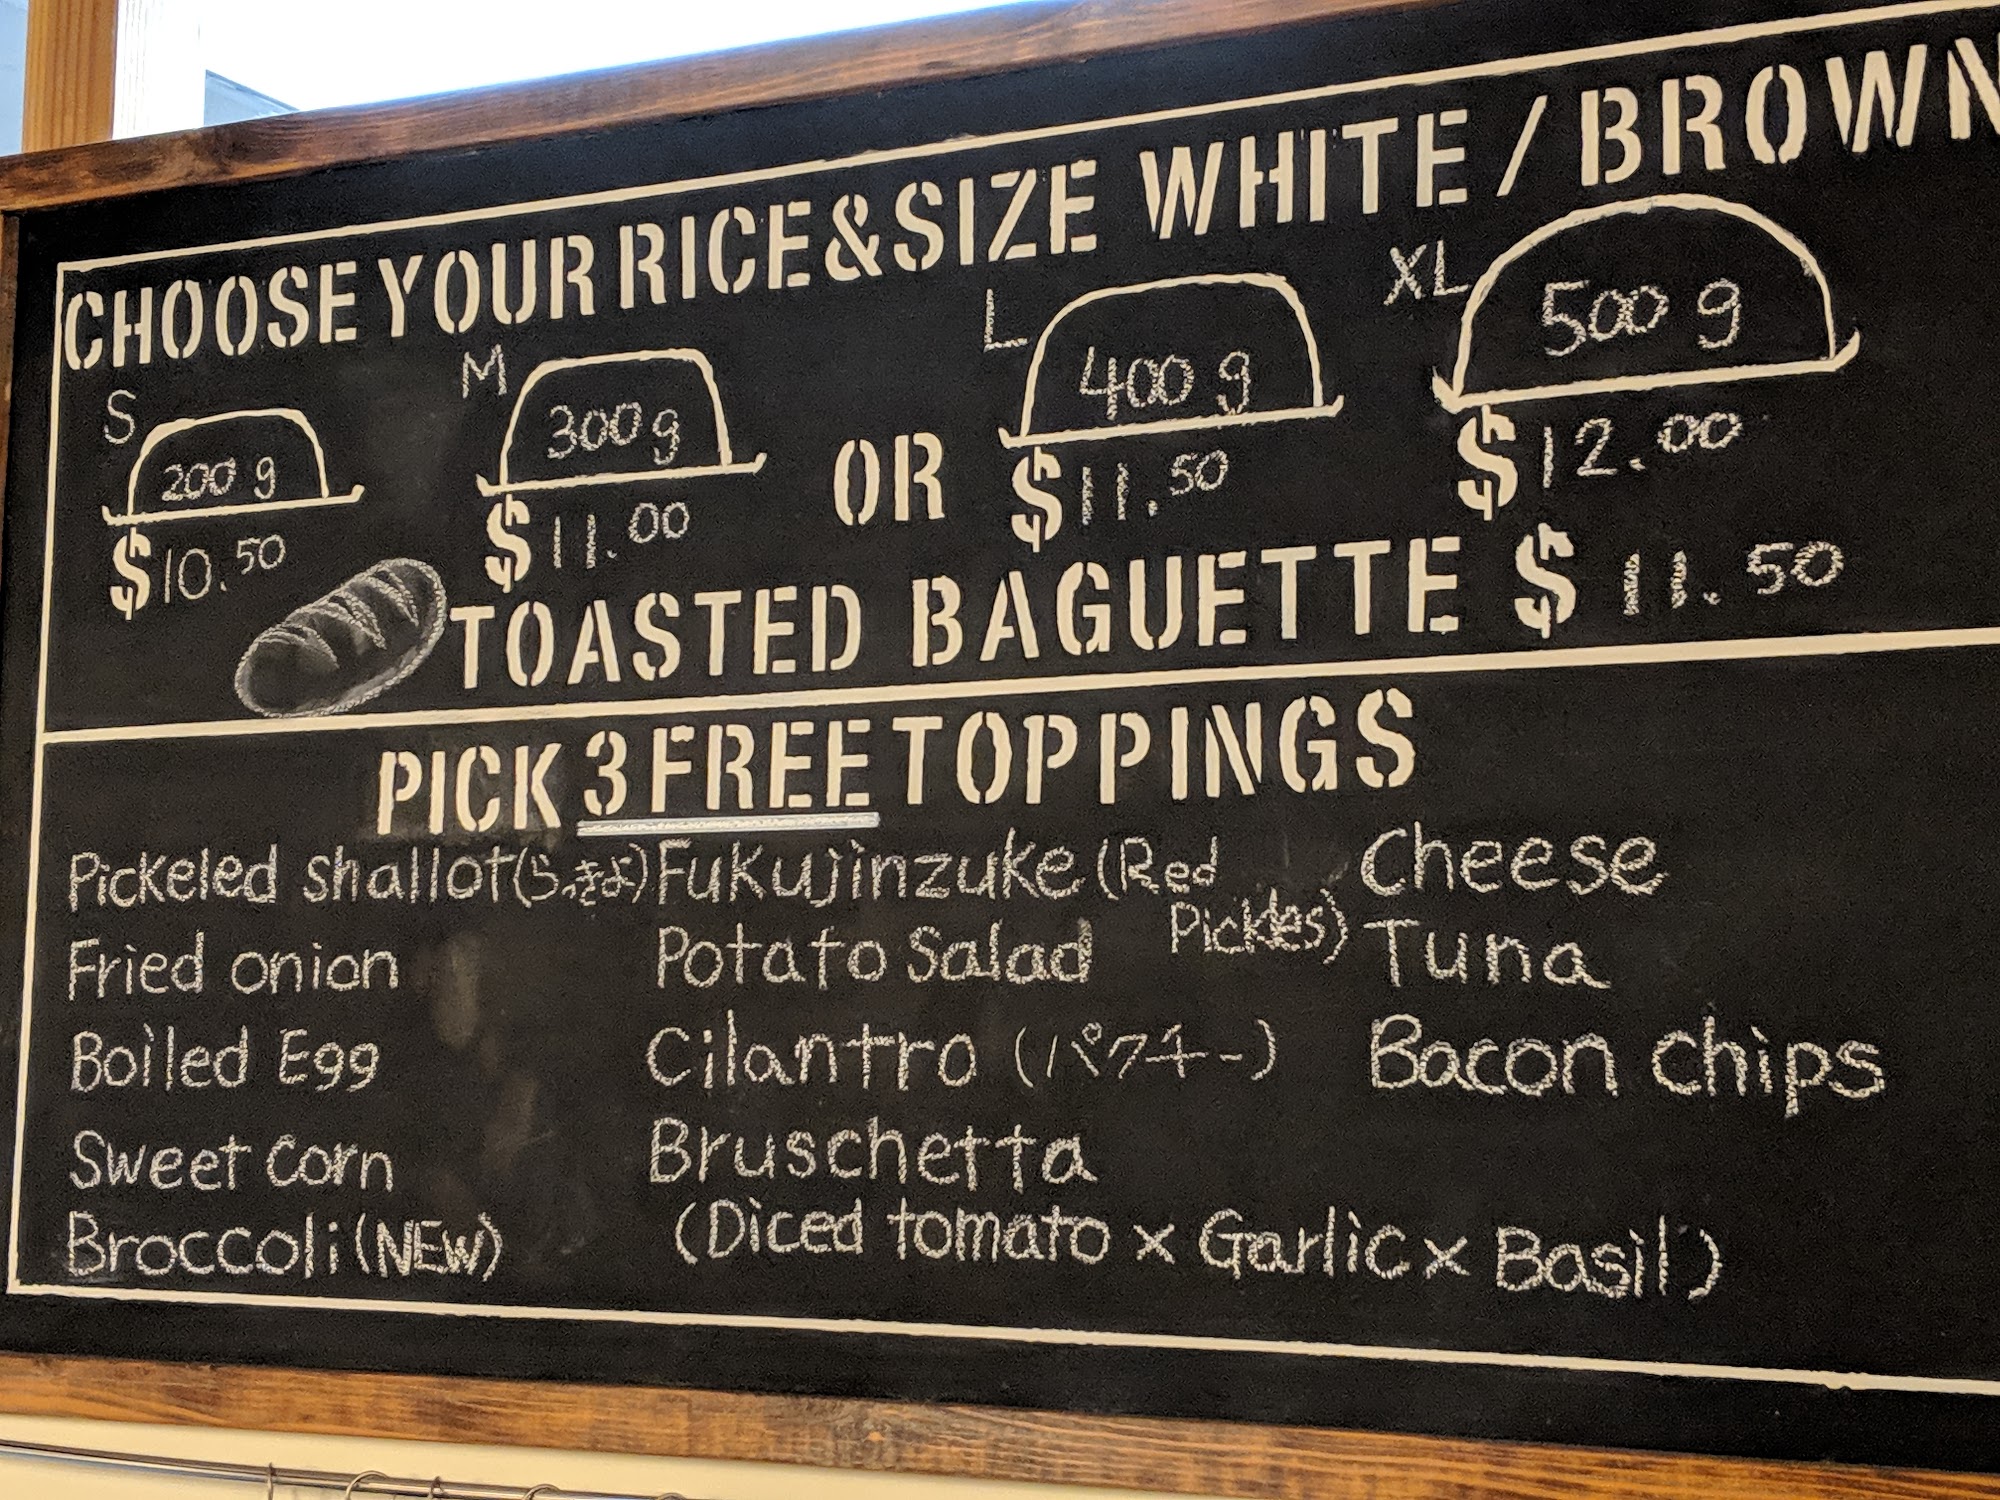 CHOOSE YOUR RICE&SIZE WHITE / BROWN
S 200 g $10.50
M 300 g $11.00
OR
L 400 g $11.50
XL 500 g $12.00
TOASTED BAGUETTE $11.50
PICK 3 FREE TOPPINGS
Pickeled shallot(らっきょ)
Fried onion
Boiled Egg
Sweet corn
Broccoli(NEW)
Fukujinzuke (Red
Pickles)
Potato Salad
Cilantro (パクチー)
Bruschetta
(Diced tomato x Garlic x Basil)
Cheese
Tuna
Bacon chips